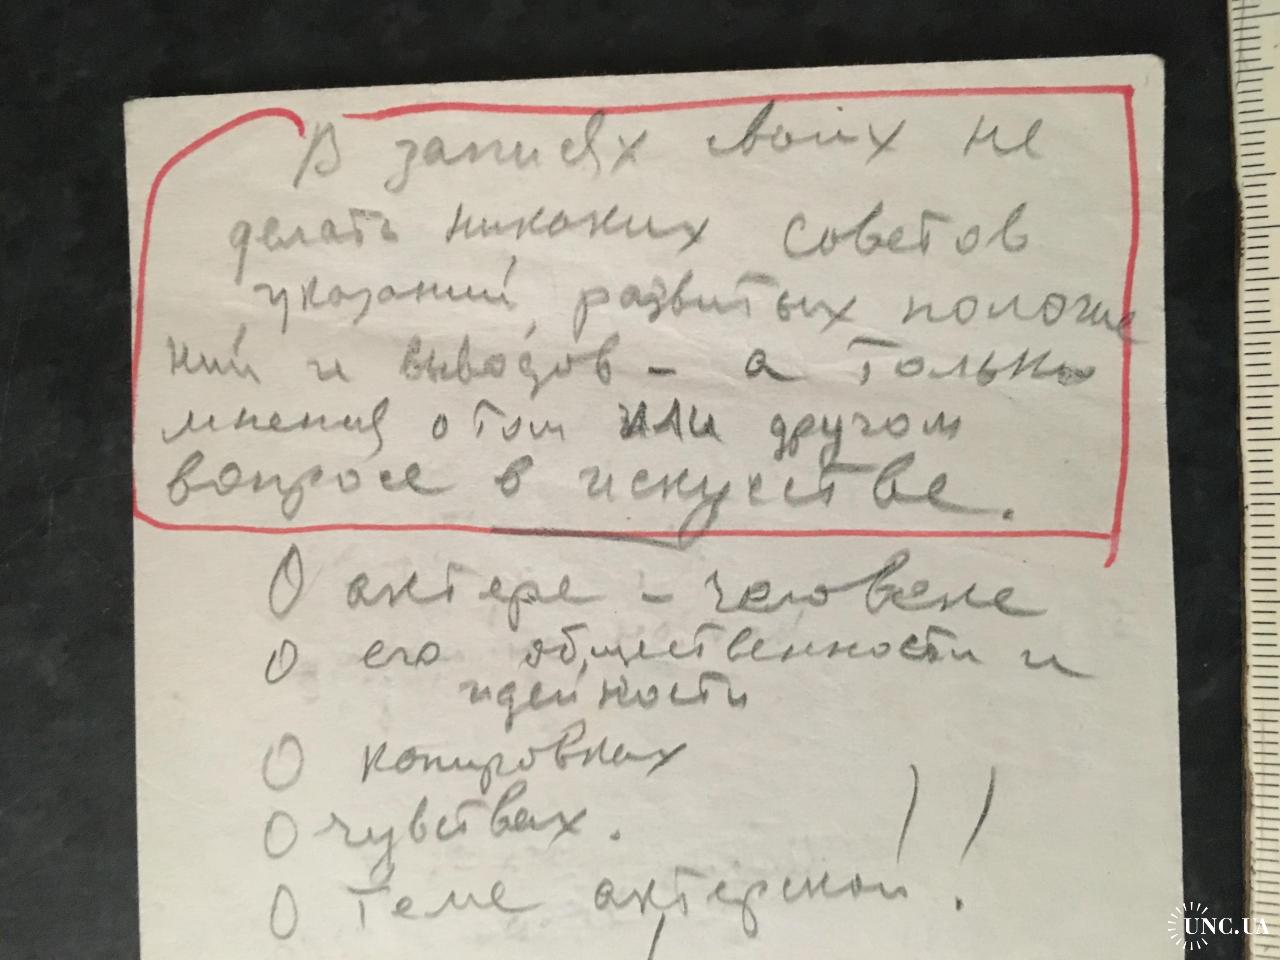 В записях своих не
делать никаких советов
указаний, развитых положе
ний и выводов - а только
мнения о том или другом
вопросе в искусстве.
О актере - человеке
О его общественности и
идейности
О копировках
О чувствах.
О теме актерской.
UNC.UA